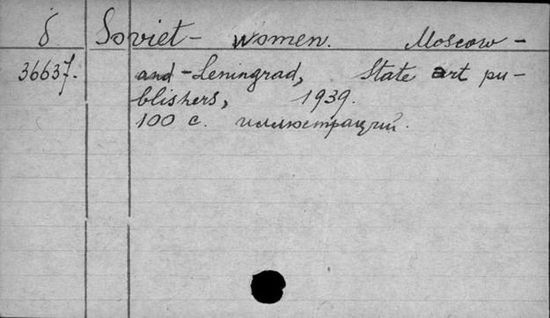 б Soviet - women. Moscow -
36637. and - Leningrad, State art pu-
blishers, 1939.
100 с. иллюстраций.